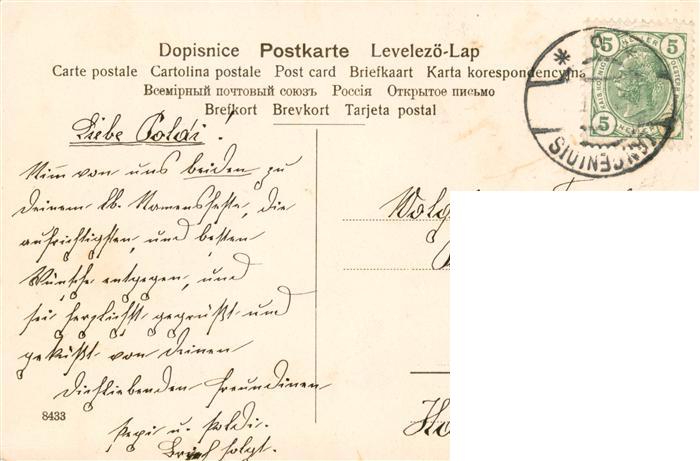 Dopisnice Postkarte Levelező-Lap
Carte postale Cartolina postale Post card Briefkaart Karta korespondencyjna
Всемірный почтовый союзъ Россія Открытое письмо
Brefkort Brevkort Tarjeta postal
5 5
5
Liebe Poldi!
Nimm von uns beiden zu
deinem lb. Namensfeste, die
aufrichtigsten, und besten
Wünsche entgegen, und
sei herzlichst gegrüßt und
geküßt von deinen
dichliebenden Freundinen
Pepi u. Poldi.
Brief folgt.
8433